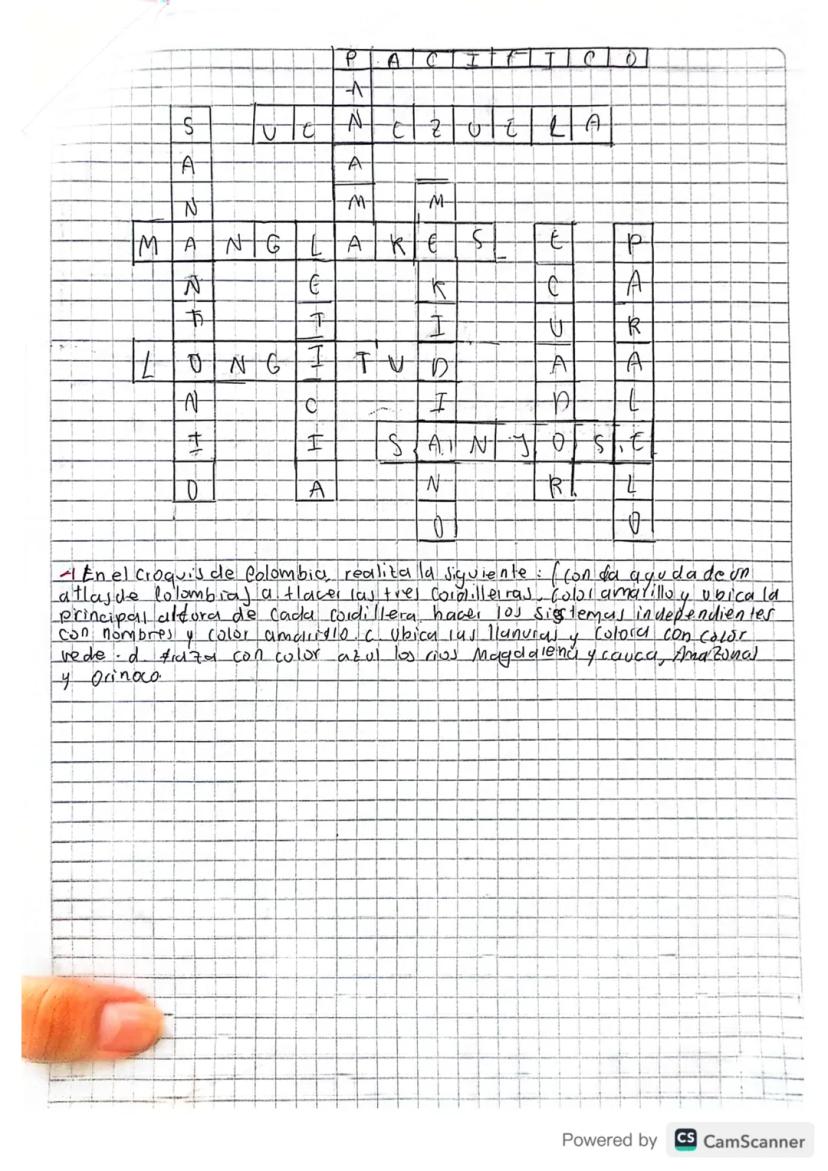 PACIFICO
PANAMA
VENEZUELA
SAN ANTONIO
MERIDIANO
MANGLARES
LETICIA
ECUADOR
PARALELO
LONGITUD
SAN JOSE
1 En el croquis de Colombia, realita la siguiente: (con da ayuda de un
atlas de Colombias) a tlacer las tres cordilleras, color amarillo y ubica la
principal altura de cada cordillera hacer los sistemas independientes
con nombres y color amarillo. c. ubica las llanuras y colora con color
vede. d. traza con color azul los rios Magdalena y cauca, Amazonas
y Orinoco.
Powered by CS CamScanner